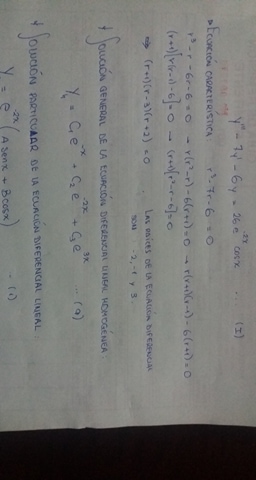 y''' - 7y' - 6y = 26e^-2x cosx ... (I)
ECUACIÓN CARACTERÍSTICA r³ - 7r - 6 = 0
r³ - r - 6r - 6 = 0 → r(r² - 1) - 6(r+1) = 0 → r(r+1)(r-1) - 6(r+1) = 0
(r+1)[r(r-1) - 6] = 0 → (r+1)[r² - r - 6] = 0
⇒ (r+1)(r-3)(r+2) = 0 . LAS RAÍCES DE LA ECUACIÓN DIFERENCIAL
SON -2, -1 y 3.
SOLUCIÓN GENERAL DE LA ECUACIÓN DIFERENCIAL LINEAL HOMOGÉNEA:
= C₁e^-x + C₂e^-2x + C₃e^3x ... (a)
SOLUCIÓN PARTICULAR DE LA ECUACIÓN DIFERENCIAL LINEAL.
= e^-2x (A senx + B cosx) ... (1)